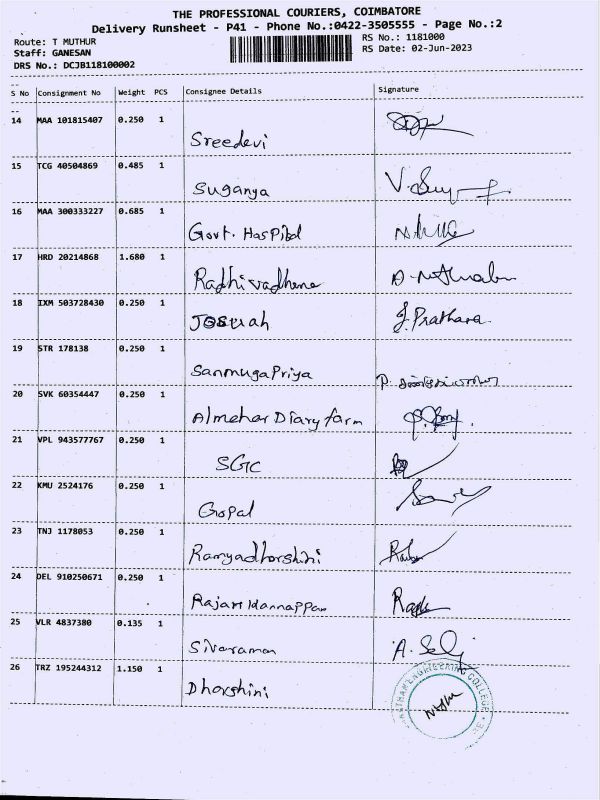 THE PROFESSIONAL COURIERS, COIMBATORE
Delivery Runsheet - P41 - Phone No.:0422-3505555 - Page No.:2
Route: T MUTHUR RS No.: 1181000
Staff: GANESAN RS Date: 02-Jun-2023
DRS No.: DCJB118100002
S No Consignment No Weight PCS Consignee Details Signature
14 MAA 101815407 0.250 1
Sreedevi
15 TCG 40504869 0.485 1
Suganya
16 MAA 300333227 0.685 1
Govt. Haspital
17 HRD 20214868 1.680 1
Radhivadhana
18 IXM 503728430 0.250 1
Josuah J. Prathara
19 STR 178138 0.250 1
SanmugaPriya
20 SVK 60354447 0.250 1
Almehar Diary farm
21 VPL 943577767 0.250 1
SGC
22 KMU 2524176 0.250 1
Gopal
23 TNJ 1178053 0.250 1
Ramyadharshini
24 DEL 910250671 0.250 1
25 VLR 4837380 0.135 1
Sivaraman
26 TRZ 195244312 1.150 1
Dharshini
ENGINEERING COLLEGE